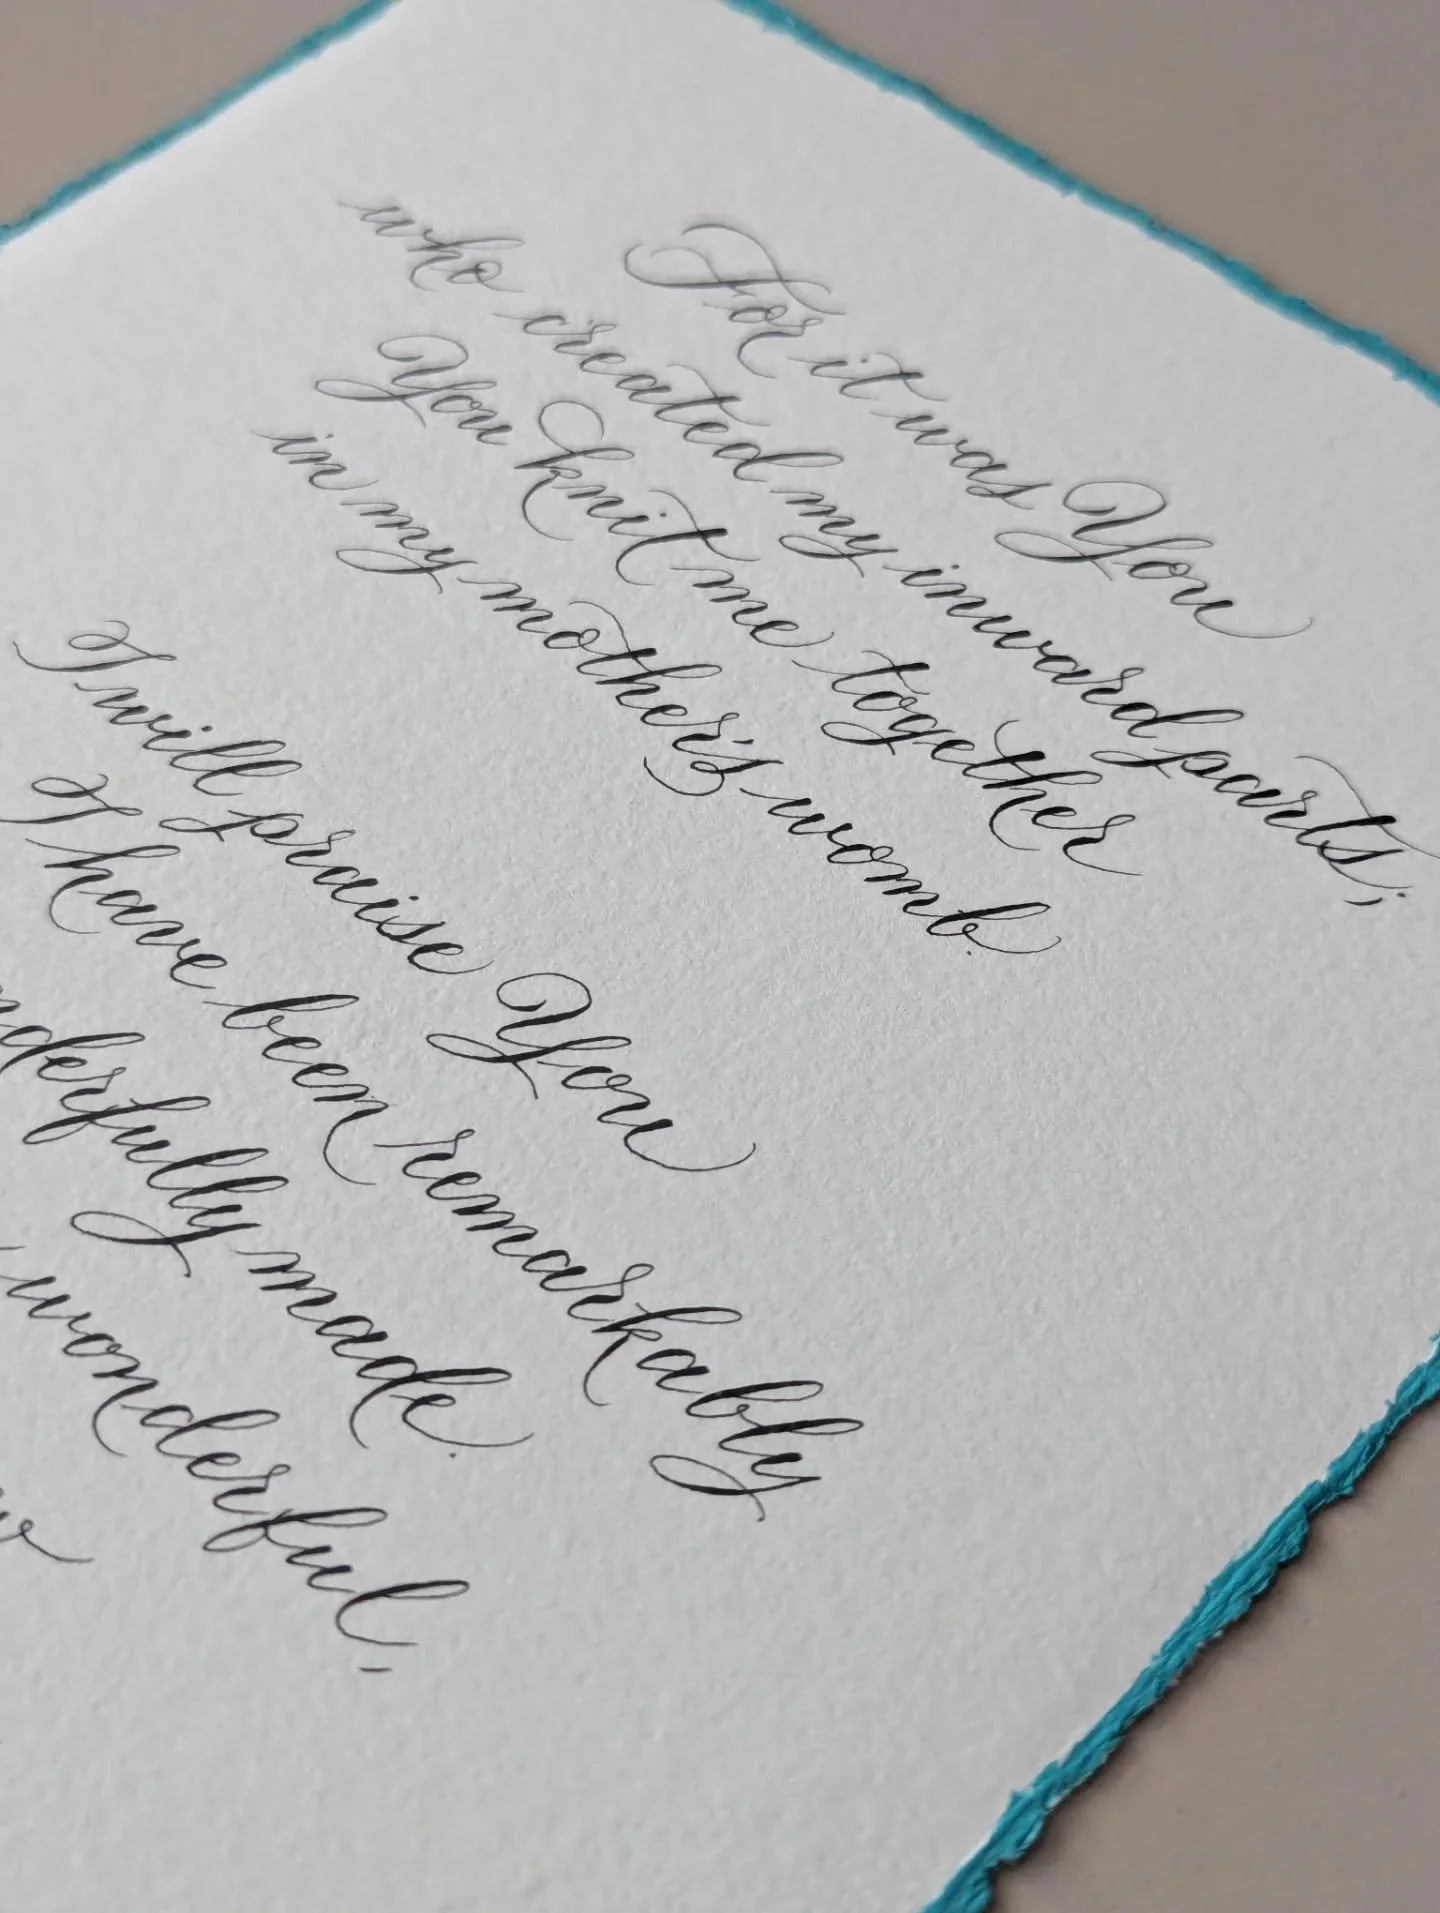 For it was You
who created my inward parts;
You knit me together
in my mother's womb.
I will praise You
I have been remarkably
made.
wonderful,